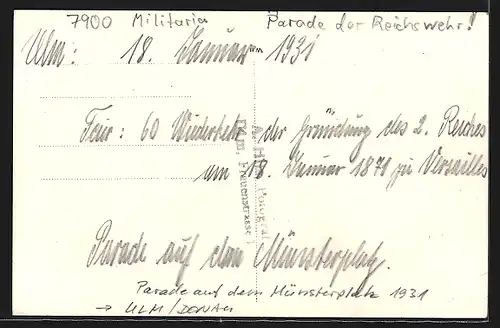 7900 Militaria Parade der Reichswehr!
Ulm: 18. Januar 1931
Feier: 60 Wiederkehr der Gründung des 2. Reiches
am 18. Januar 1871 zu Versailles
Parade auf dem Münsterplatz.
Parade auf dem Münsterplatz 1931
→ ULM/DONAU
Ulm, Frauenstrasse 1